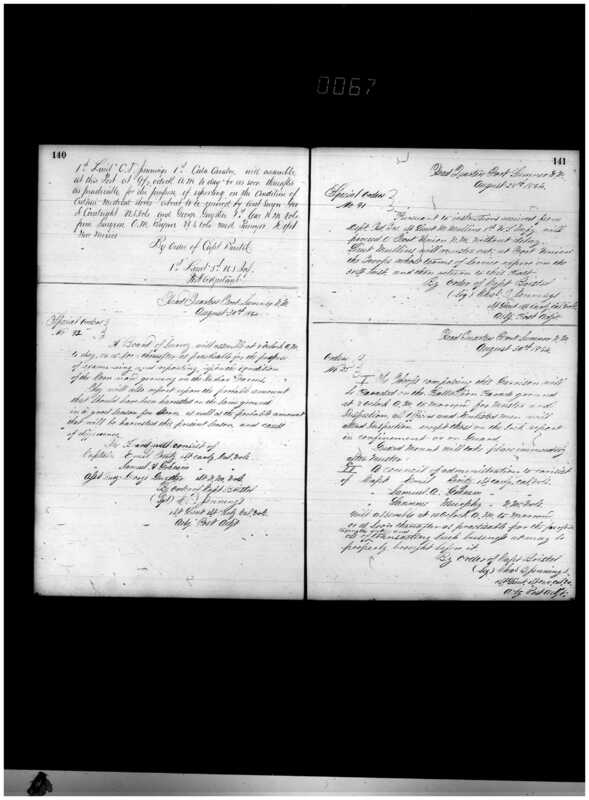 0067
140
1st Lieut C. J. Jennings 1st Cala Cavalry will assemble
at this Post at o'clock A.M. to day or as soon thereafter
as practicable for the purpose of reporting on the condition of
Medical Stores about to be by
and George Gwyther
Surgeon U.S. Vols
New Mexico
By Order of Capt
1st Lieut 5th U.S. Inf.
Post Adjutant
Head Quarters Fort Sumner N.M.
August 30th 1864
Special Orders
No 92
A Board of Survey will assemble at o'clock A.M.
to day, or as soon thereafter as practicable for the purpose
of examining and reporting upon the condition
of the Corn now growing on the Indian Farms.
They will also report upon the probable amount
that should have been harvested on the same ground
in a good season for Corn as well as the probable amount
that will be harvested this present season and cause
of difference
The Board will consist of
Captain Emil Fritz 1st Cavy Cal. Vols.
" Samuel A Gorham "
Asst Surg George Gwyther 1st N.M. Vols
By order of Capt
(Sgd) C. J. Jennings
1st Lieut 1st Cavy Cal. Vols
Actg Post Adjt
141
Head Quarters Fort Sumner N.M.
August 28th 1864
Special Orders
No 91
Pursuant to instructions received from
Dept. 1st Lieut McMullins 1st will
proceed to Fort Union N.M. without delay.
Lieut McMullins will muster out, at Fort Union
the Troops whose terms of service expires on the
31st Inst. and then return to this Post.
By Order of Capt
(Sgd) Chas. J. Jennings
1st Lieut 1st Cav. Cal. Vols
Actg Post Adjt
Head Quarters Fort Sumner N.M.
August 30th 1864
Orders
No 25
I The Troops comprising this Garrison will
be Paraded on the Parade ground
at o'clock A.M. to morrow for Muster and
Inspection, all officers and enlisted men will
attend Inspection except those on the sick report
in confinement or on Guard.
Guard Mount will take place immediately
after Muster
II A council of administration to consist
of Capt Emil Fritz 1st Cavy Cal. Vols
" Samuel A. Gorham "
" Murphy " N.M. Vols
Will assemble at o'clock A.M. to morrow
or as soon thereafter as practicable for the purpose
of transacting such business as may be
properly brought before it.
By Order of Capt
(Sgd) Chas J Jennings
1st Lieut 1st Cav. Cal. Vo.
Actg Post Adjt.